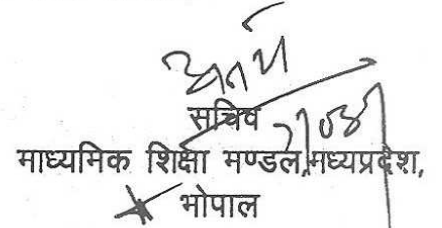 सचिव
माध्यमिक शिक्षा मण्डल,मध्यप्रदेश,
भोपाल